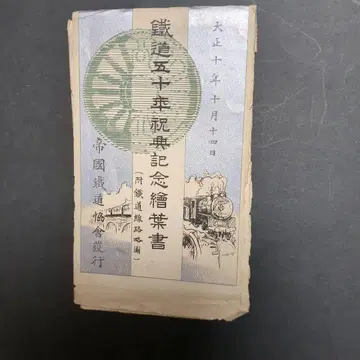 大正十年十月十四日
鐵道五十年祝典記念繪葉書
(附鐵道線路略圖)
帝國鐵道協會發行